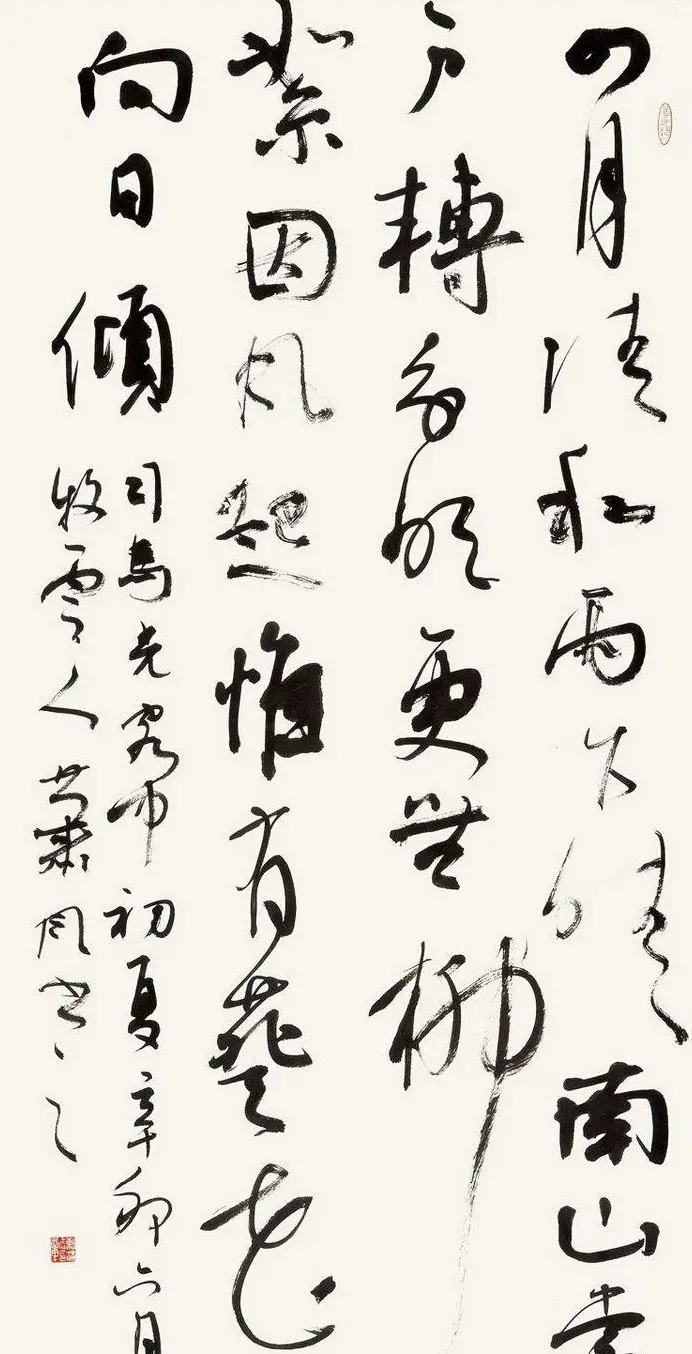 四月清和雨乍晴南山當
户轉分明更無柳
絮因風起惟有葵花
向日傾
司馬光客中初夏辛卯六月
牧雲人蕭風書之